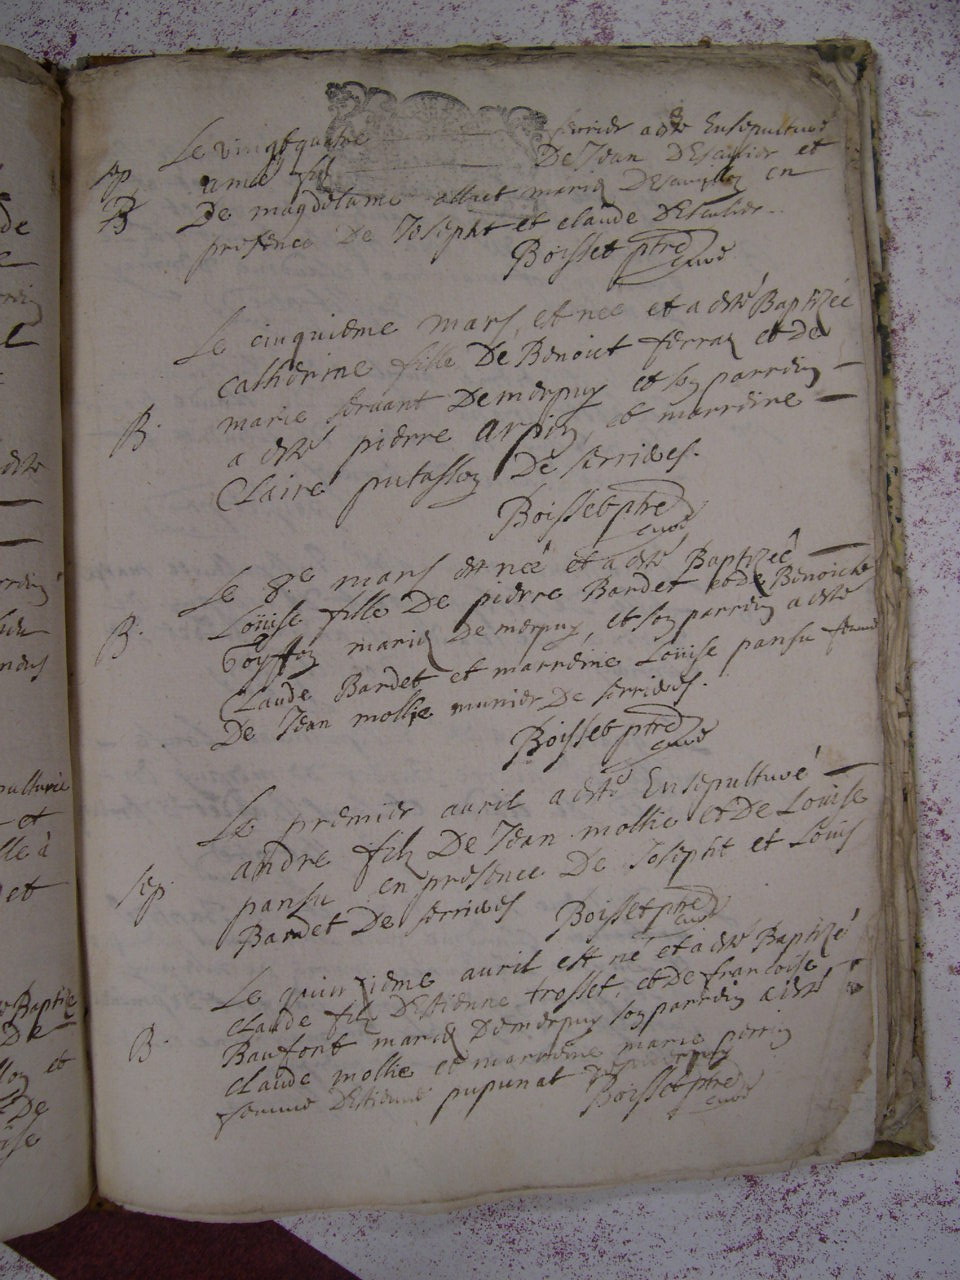 Le vingt quatre fevrier a esté Ensepulturé
Sep. aimé fil De Jean DEscuvier et
B De magdelaine mariez en
presence De Joseph et claude
Boisset ptre
curé
Le cinquiéme mars, et née et a esté Baptizée
catherine fille De Benoict ferraz et De
marie servant Demerpuy et son parrein
B. a esté pierre arpin, et marreine
Claire putasson De serrieres.
Boisset ptre
curé
Le 8.e mars est née et a esté Baptizée
Loüise fille De pierre Bardet et De Benoicte
B. mariez Demerpuy, et son parrein a esté
Claude Bardet et marreine Loüise pansu femme
De Jean mollie munier De serrieres.
Boisset ptre
curé
Le premier avril a esté Ensepulturé
andre filz De Jean mollie et De Louise
Sep. pansu en presence De Joseph et Louis
Bardet De serrieres Boisset ptre
curé
Le quinzième avril est né et a esté Baptizé
claude filz DEstienne trosset, et De francoise
B. Baufont mariez Demerpuy son parrein a esté
claude mollie et marreine marie perrin
femme DEstienne pupunat Demerpuy
Boisset ptre
curé